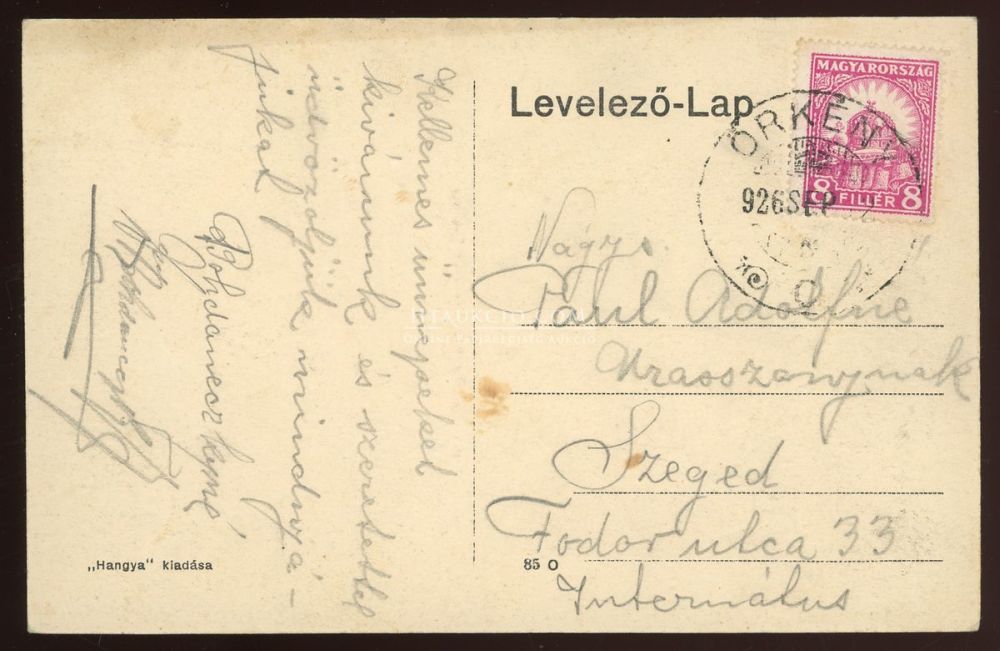 Levelező-Lap
MAGYARORSZÁG
8 FILLÉR 8
ÖRKÉNY
926 SEP
Kellemes ünnepeket
kivánunk és szeretettel
üdvözöljük mindnyá-
jukat
Nagys.
Paul Adolfné
Uraosszonynak
Szeged
Fodor utca 33
Internátus
„Hangya” kiadása
85 O